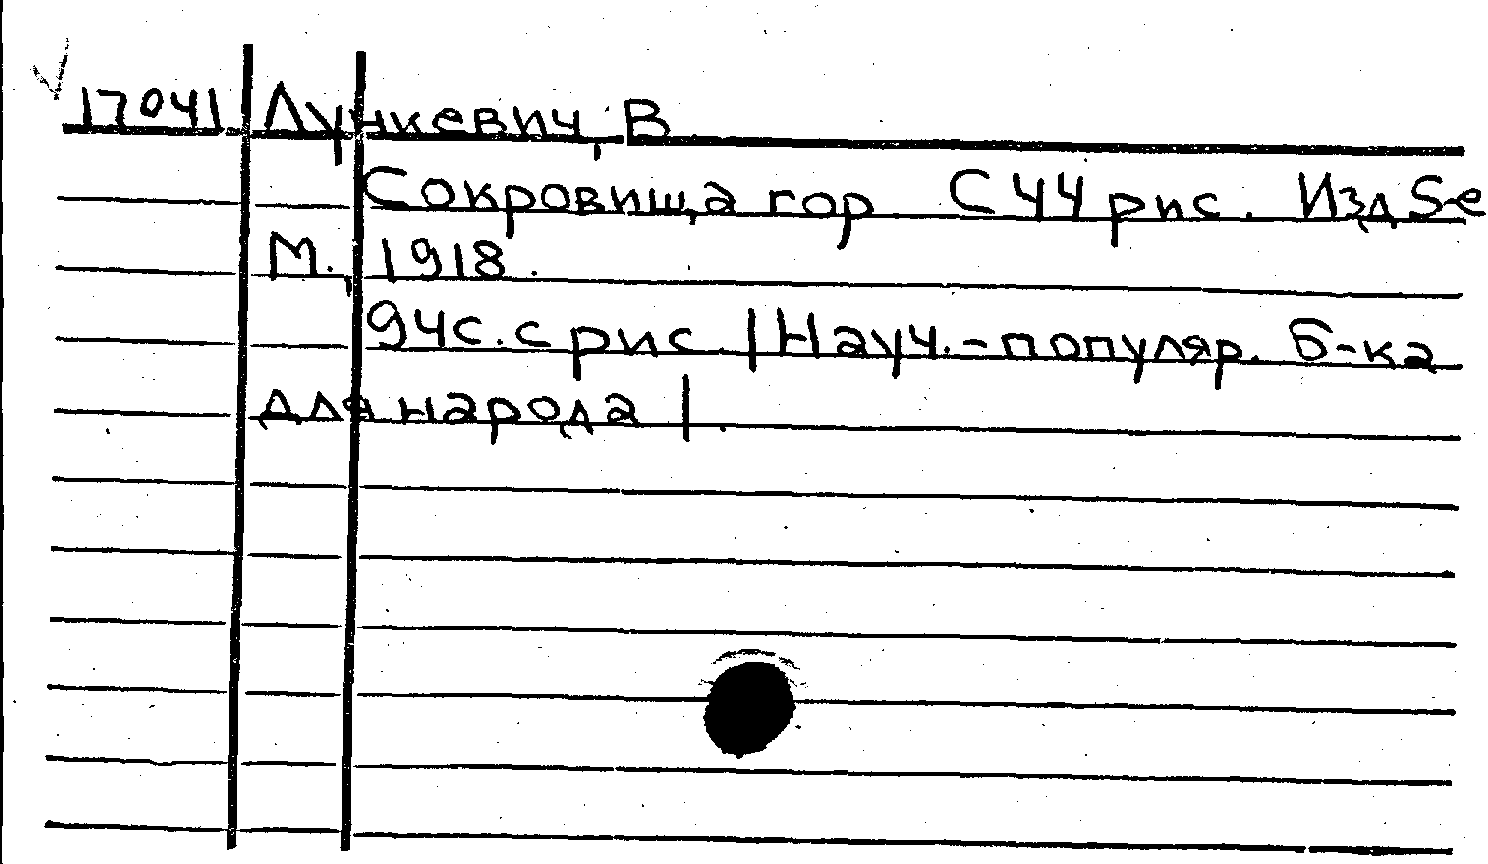 17041 Лункевич, В
Сокровища гор С 44 рис. Изд 5-е
М., 1918.
94с. с рис | Науч.-популяр. б-ка
для народа |.